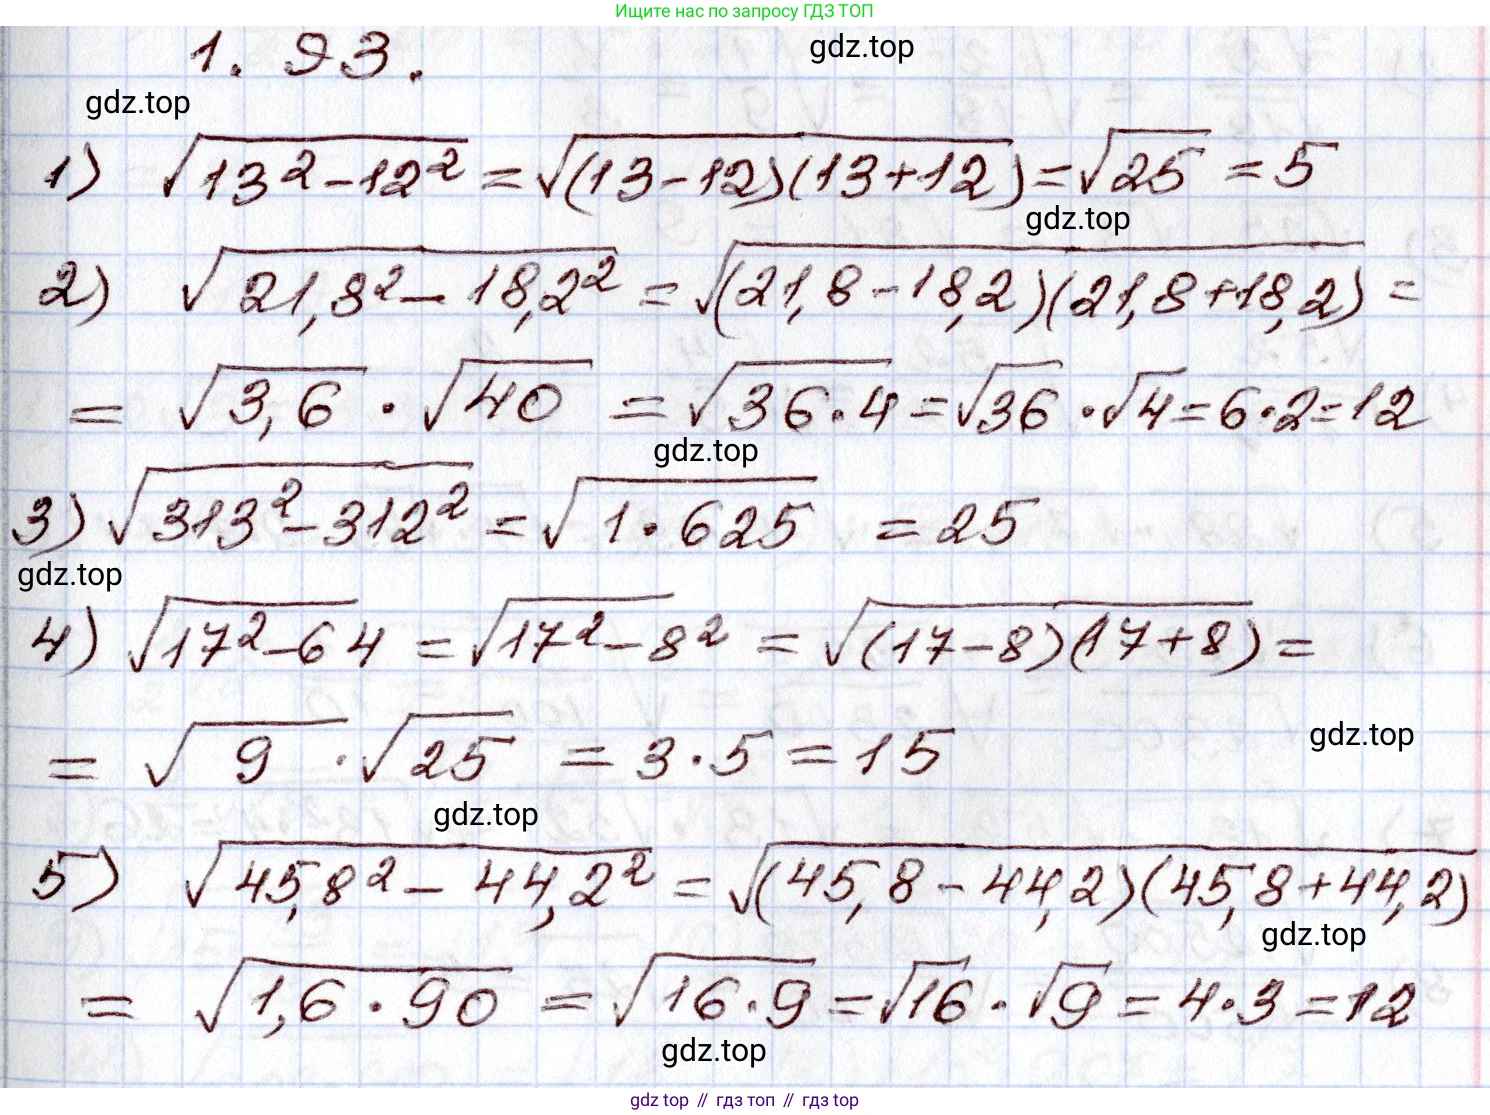 Ищите нас по запросу ГДЗ ТОП
1. 93.
gdz.top
gdz.top
1) √(13² - 12²) = √((13-12)(13+12)) = √25 = 5
gdz.top
2) √(21,8² - 18,2²) = √((21,8 - 18,2)(21,8+18,2)) =
= √3,6 · √40 = √(36·4) = √36 · √4 = 6·2 = 12
gdz.top
3) √(313² - 312²) = √(1·625) = 25
gdz.top
4) √(17² - 64) = √(17² - 8²) = √((17-8)(17+8)) =
gdz.top
= √9 · √25 = 3·5 = 15
gdz.top
5) √(45,8² - 44,2²) = √((45,8 - 44,2)(45,8+44,2))
gdz.top
= √(1,6 · 90) = √(16·9) = √16 · √9 = 4·3 = 12
gdz.top
gdz top // гдз топ // гдз top